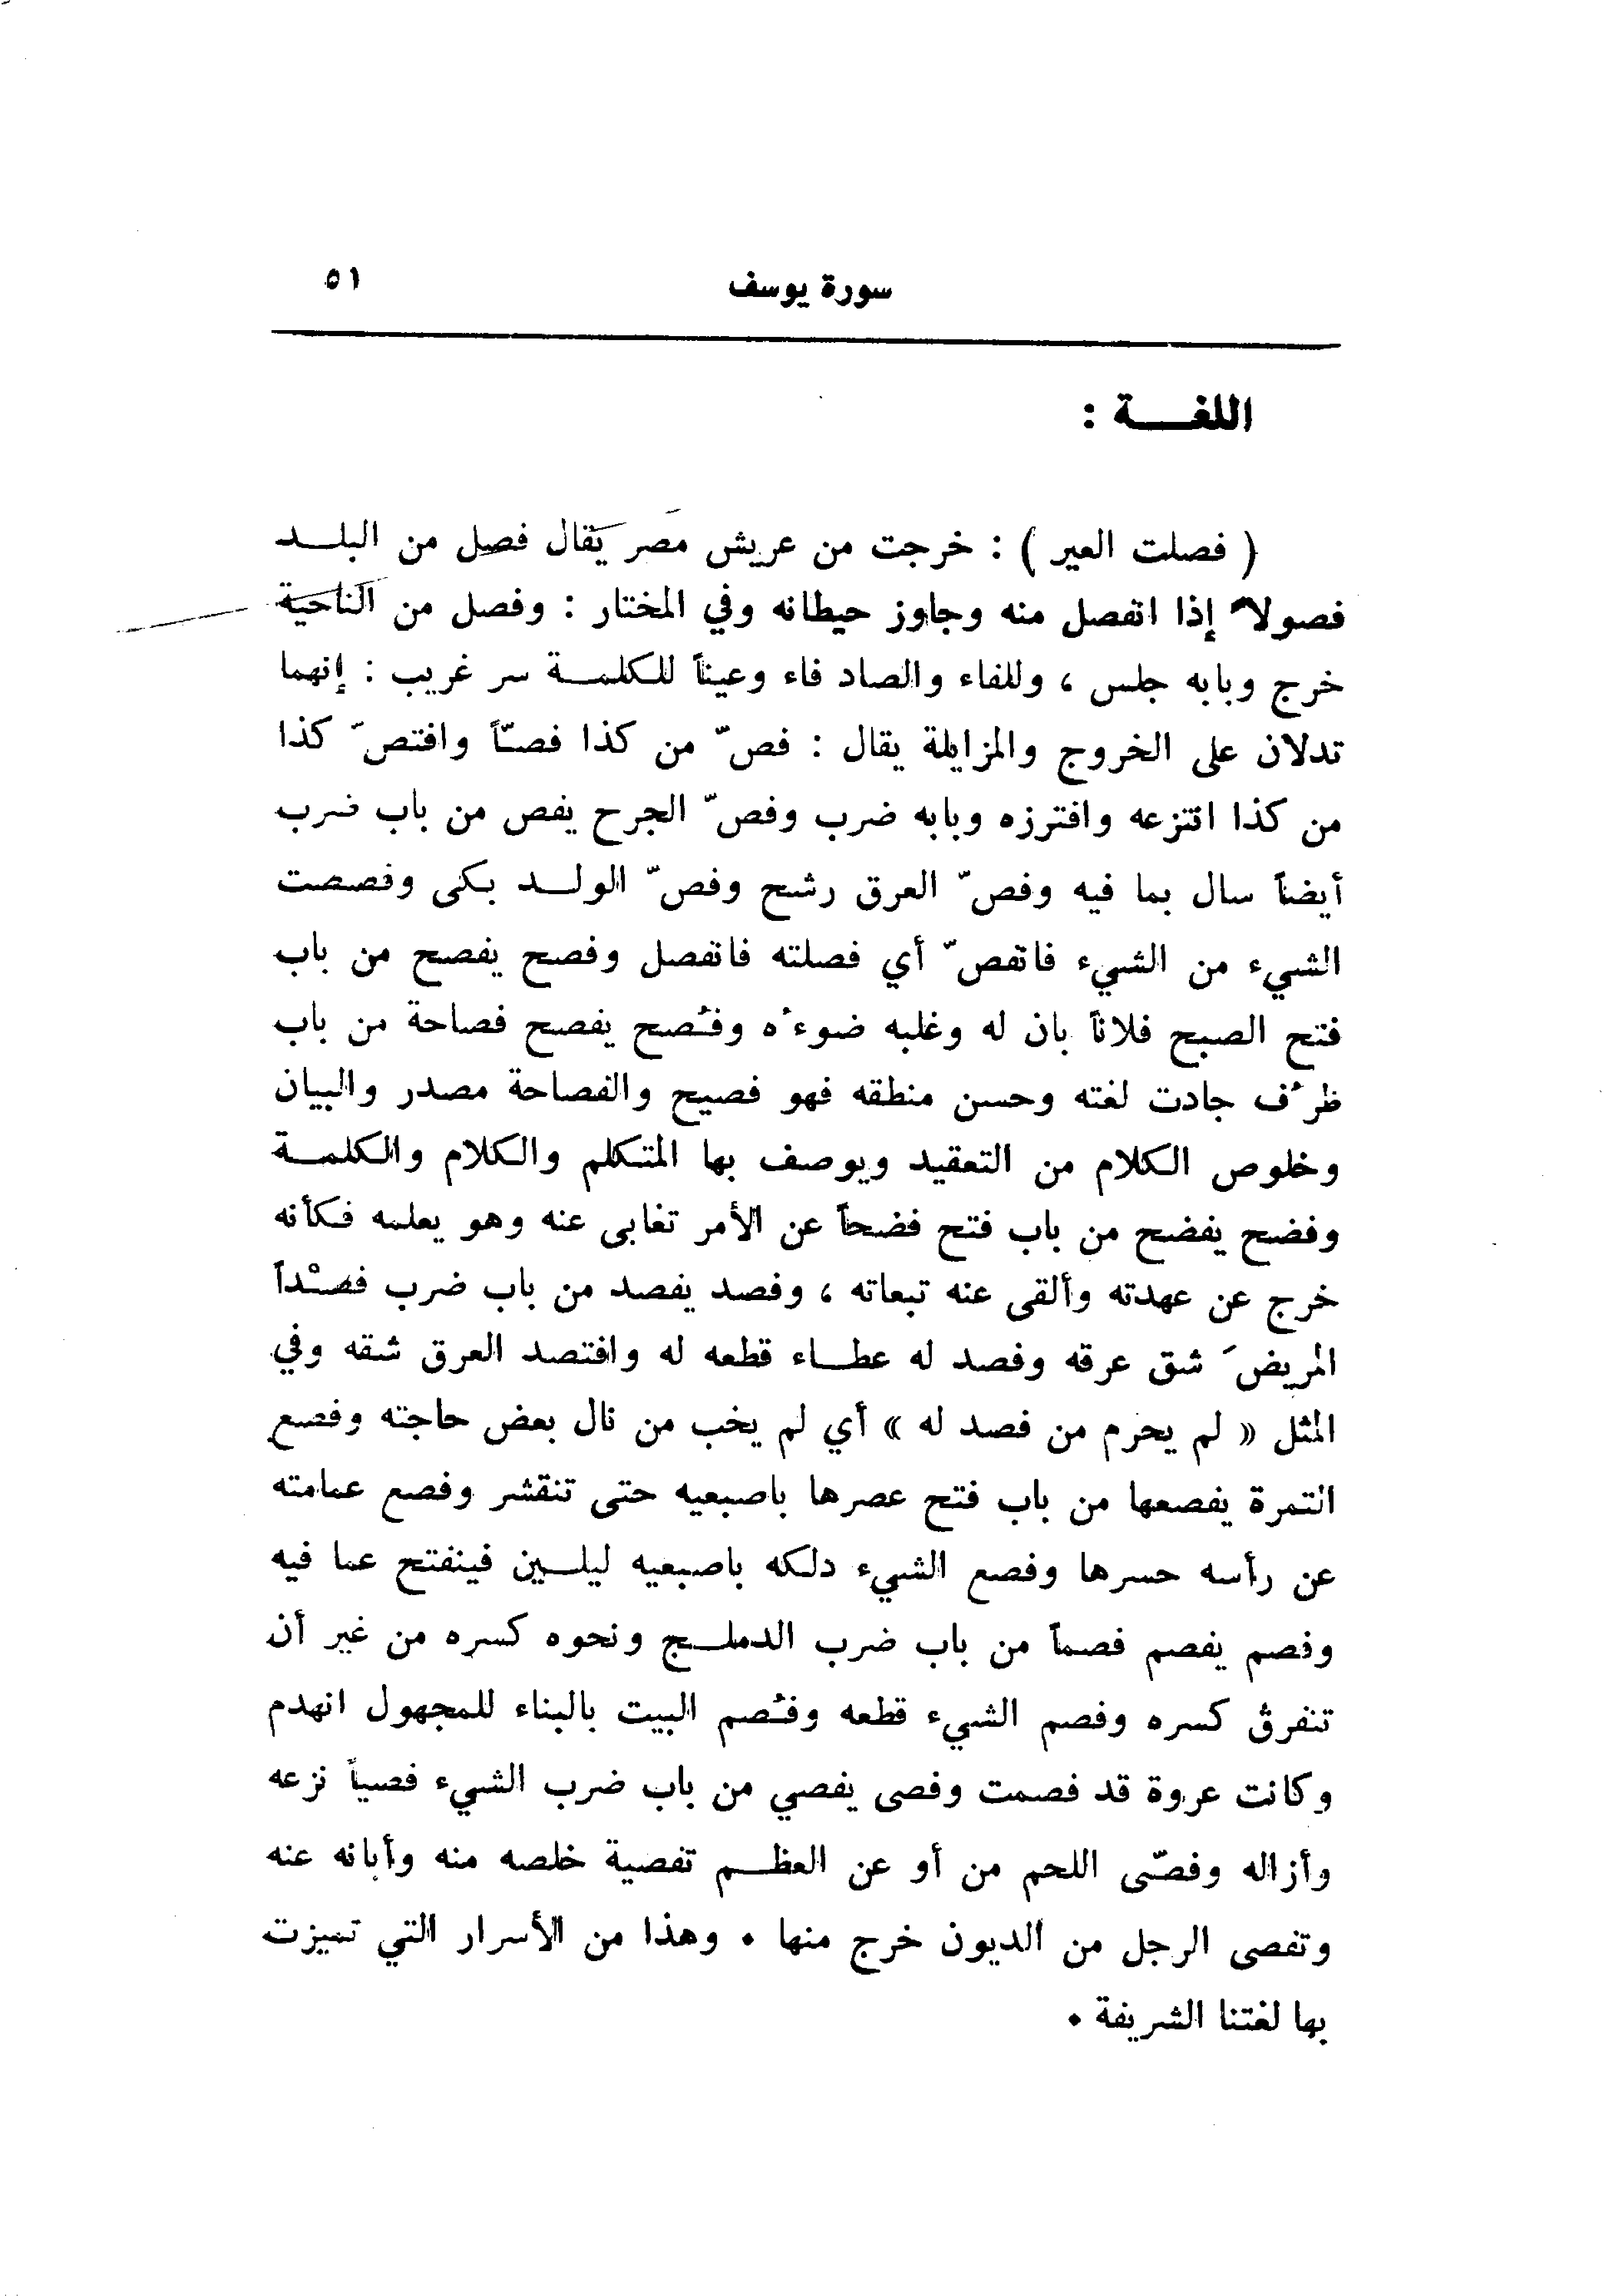 سورة يوسف ٥١
اللغـــة :
( فصلت العير ) : خرجت من عريش مصر يقال فصل من البلــد
فصولاً إذا انفصل منه وجاوز حيطانه وفي المختار : وفصل من الناحية
خرج وبابه جلس ، وللفاء والصاد فاء وعيناً للكلمــة سر غريب : إنهما
تدلان على الخروج والمزايلة يقال : فصّ من كذا فصّاً وافتصّ كذا
من كذا انتزعه وافترزه وبابه ضرب وفصّ الجرح يفص من باب ضرب
أيضاً سال بما فيه وفصّ العرق رشح وفصّ الولــد بكى وفصصت
الشيء من الشيء فانفصّ أي فصلته فانفصل وفصح يفصح من باب
فتح الصبح فلاناً بان له وغلبه ضوءُه وفُصح يفصح فصاحة من باب
ظرُف جادت لغته وحسن منطقه فهو فصيح والفصاحة مصدر والبيان
وخلوص الكلام من التعقيد ويوصف بها المتكلم والكلام والكلمــة
وفضح يفضح من باب فتح فضحاً عن الأمر تغابى عنه وهو يعلمه فكأنه
خرج عن عهدته وألقى عنه تبعاته ، وفصد يفصد من باب ضرب فصْداً
المريضَ شق عرقه وفصد له عطــاء قطعه له وافتصد العرق شقه وفي
المثل « لم يحرم من فصد له » أي لم يخب من نال بعض حاجته وفصع
التمرة يفصعها من باب فتح عصرها باصبعيه حتى تنقشر وفصع عمامته
عن رأسه حسرها وفصع الشيء دلكه باصبعيه ليلــين فينفتح عما فيه
وفصم يفصم فصماً من باب ضرب الدملــج ونحوه كسره من غير أن
تنفرق كسره وفصم الشيء قطعه وفُصم البيت بالبناء للمجهول انهدم
وكانت عروة قد فصمت وفصى يفصي من باب ضرب الشيء فصياً نزعه
وأزاله وفصّى اللحم من أو عن العظــم تفصية خلصه منه وأبانه عنه
وتفصى الرجل من الديون خرج منها . وهذا من الأسرار التي تميزت
بها لغتنا الشريفة .